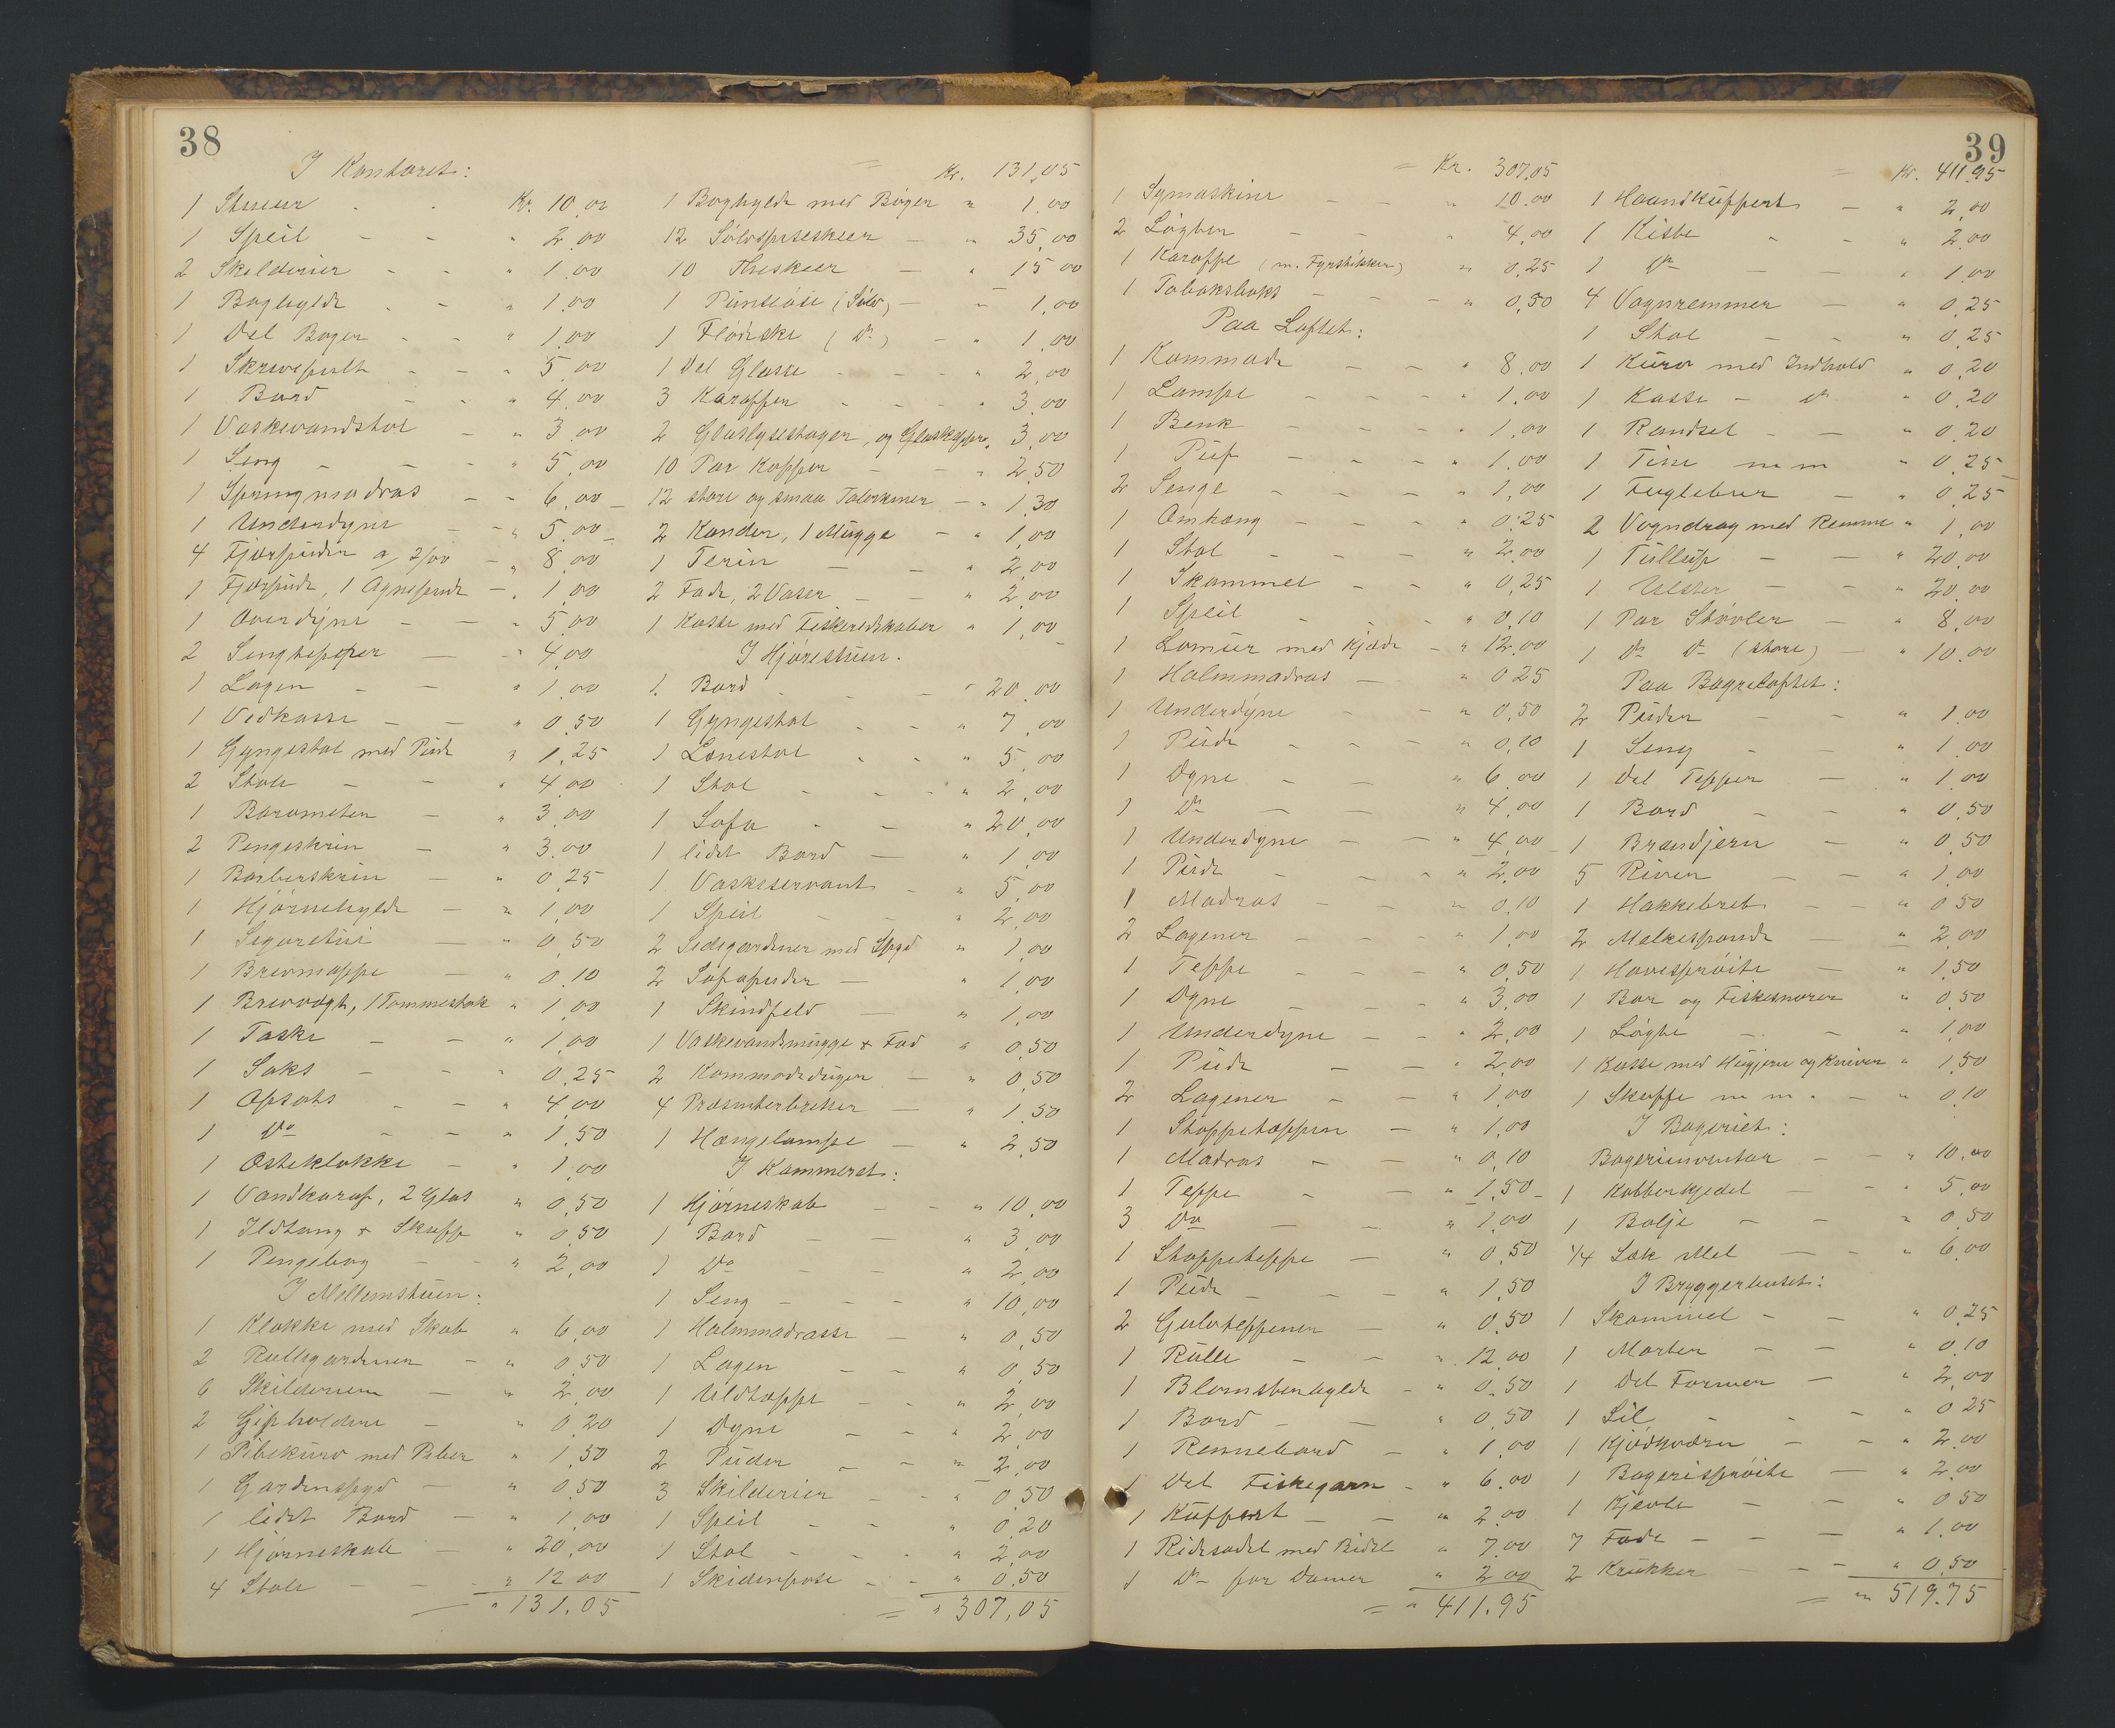 38
I Kontoret:
1 Kr. 10,00
1 Speil - - " 2,00
2 Skilderier - - " 1,00
1 Boghylde - " 1,00
1 Del Bøger - - " 1,00
1 Skrivepult - - " 5,00
1 Bord - - " 4,00
1 Vaskevandstol - " 3,00
1 Seng - - - " 5,00
1 Springmadras - " 6,00
1 Underdyne - " 5,00
4 Fjærpuder a 2/00 - " 8,00
1 Fjærpude, 1 Agnepude - " 1,00
1 Overdyne - - " 5,00
2 Sengtepper - - 4,00
1 Lagen - - " 1,00
1 Vedkasse - - " 0,50
1 Gyngestol med Pude " 1,25
2 Stole - - " 4,00
1 Barometer - " 3,00
2 Pengeskrin - " 3,00
1 Barberskrin - " 0,25
1 Hjørnehylde - " 1,00
1 Sigaretui - " 0,50
1 Brevmappe - " 0,10
1 Brevvægt, 1 Tommestok " 1,00
1 Taske - - " 1,00
1 Saks - - " 0,25
1 Opsats - - " 4,00
1 Do - - " 1,50
1 Osteklokke - " 1,00
1 Vandkaraf, 2 Glas " 0,50
1 Ildtang & Skuffe " 0,50
1 Pengebog - - " 2,00
I Mellemstuen:
1 Klokke med Skab " 6,00
2 Rullegardiner - " 0,50
6 Skilderier - " 2,00
2 Gipholdere - " 0,20
1 Pibekurv med Piber " 1,50
1 Gardinspyd - " 0,50
1 lidet Bord - " 1,00
1 Hjørneskab - " 20,00
4 Stole - - - " 12,00
— " 131,05
= Kr. 131,05
1 Boghylde med Bøger " 1,00
12 Sølvspiseskeer - " 35,00
10 Theskeer - " 15,00
1 Punseøse (Sølv) - " 1,00
1 Flødeske (Do) - " 1,00
1 Del Glasse - - - " 2,00
3 Karaffer - - - " 3,00
2 Glaslysestager, og 3,00
10 Par Kopper - - " 2,50
12 store og smaa Talerkener - " 1,30
2 Kander, 1 Mugge - " 1,00
1 Terin - - " 2,00
2 Fade, 2 Vaser - - " 2,00
1 Kasse med Fiskeredskaber " 1,00
I Hjørestuen.
1 Bord - - - " 20,00
1 Gyngestol - - " 7,00
1 Lænestol - - " 5,00
1 Stol - - - " 2,00
1 Sofa - - " 20,00
1 lidet Bord - " 1,00
1 Vaskeservant - " 5,00
1 Speil - - " 2,00
2 Sidegardiner med Spyd " 1,00
2 Sofapuder - " 1,00
1 Skindfeld - " 1,00
1 Vaskevandsmugge & Fad " 0,50
2 Kommodeduger - " 0,50
4 Præsenterbretter - " 1,50
1 Hængelampe - " 2,50
I Kammeret:
1 Hjørneskab - - " 10,00
1 Bord - - " 3,00
1 Do - - " 2,00
1 Seng - - - " 10,00
1 Halmmadrasse - " 0,50
1 Lagen - - " 0,50
1 Uldtæppe - - " 2,00
1 Dyne - - - " 2,00
2 Puder - - " 2,00
3 Skilderier - - " 0,50
1 Speil - - " 0,20
1 Stol - - - " 2,00
1 Skidenpose - - " 0,50
= " 307,05
39
= Kr. 307,05
1 Symaskine - - " 10,00
2 Løgter - - " 4,00
1 Karaffe (m. Fyrstikker) " 0,25
1 Tobaksboks - - - " 0,50
Paa Loftet:
1 Kommode - - " 8,00
1 Lampe - - - " 1,00
1 Benk - - - " 1,00
1 Puf - - - " 1,00
2 Senge - - - " 1,00
1 Omhæng - - - " 0,25
1 Stol - - - " 2,00
1 Skammel - - " 0,25
1 Speil - - - " 0,10
1 Lomur med Kjæde - " 12,00
1 Halmmadras - " 0,25
1 Underdyne - - " 0,50
1 Pude - - - " 0,10
1 Dyne - - " 6,00
1 Do - - " 4,00
1 Underdyne - - " 4,00
1 Pude - - - " 2,00
1 Madras - - " 0,10
2 Lagener - - - " 1,00
1 Teppe - - - " 0,50
1 Dyne - - - " 3,00
1 Underdyne - - " 2,00
1 Pude - - " 2,00
2 Lagener - - " 1,00
1 Stoppetæppen - " 1,00
1 Madras - - " 0,10
1 Teppe - - " 1,50
3 Do - - " 1,00
1 Stoppeteppe - " 0,50
1 Pude - - - " 1,50
2 Gulvteppener - " 0,50
1 Rulle - - " 12,00
1 Blomsterhylde - " 0,50
1 Bord - - " 0,50
1 Rennebord - " 1,00
1 Del Fiskegarn - " 6,00
1 Kuffert - - " 2,00
1 Ridesadel med Bidsel " 7,00
1 Do for Damer " 2,00
= " 411,95
= Kr. 411,95
1 Haandkuffert - " 2,00
1 Kiste - - " 2,00
1 Do - - " 1,00
4 Vognremmer - " 0,25
1 Stol - - " 0,25
1 Kurv med Indhold " 0,20
1 Kasse - Do " 0,20
1 Randsel - - " 0,20
1 Tine m m " 0,25
1 Fuglebur - " 0,25
2 Vogndrag med Remme " 1,00
1 - - " 20,00
1 Ulster - - " 20,00
1 Par Støvler - " 8,00
1 Do Do (store) - " 10,00
Paa Bagreloftet:
2 Puder - - " 1,00
1 Seng - - " 1,00
1 Del Tepper - " 1,00
1 Bord - - " 0,50
1 Brændjern - " 0,50
5 River - - " 1,00
1 Hakkebret - - " 0,50
2 Melkespande - " 2,00
1 Havesprøite - " 1,50
1 Bar og Fiskesnører " 0,50
1 Løgte - - " 1,00
1 Kasse med og Kniver " 1,50
1 Skuffe m m. - " 0,10
I Bageriet:
Bageriinventar - - " 10,00
1 Kobberkjedel - - " 5,00
1 Balje - - " 0,50
1/4 Sæk Mel - - " 6,00
I Bryggerhuset:
1 Skammel - - " 0,25
1 Morter - - " 0,10
1 Del Former - " 2,00
1 Sil - - - " 0,25
1 Kjødkværn - - " 2,00
1 Bagerisprøite - " 2,00
1 Kjevle - - " 0,50
7 Fade - - - " 1,00
2 Krukker - - - " 0,50
= " 519,75